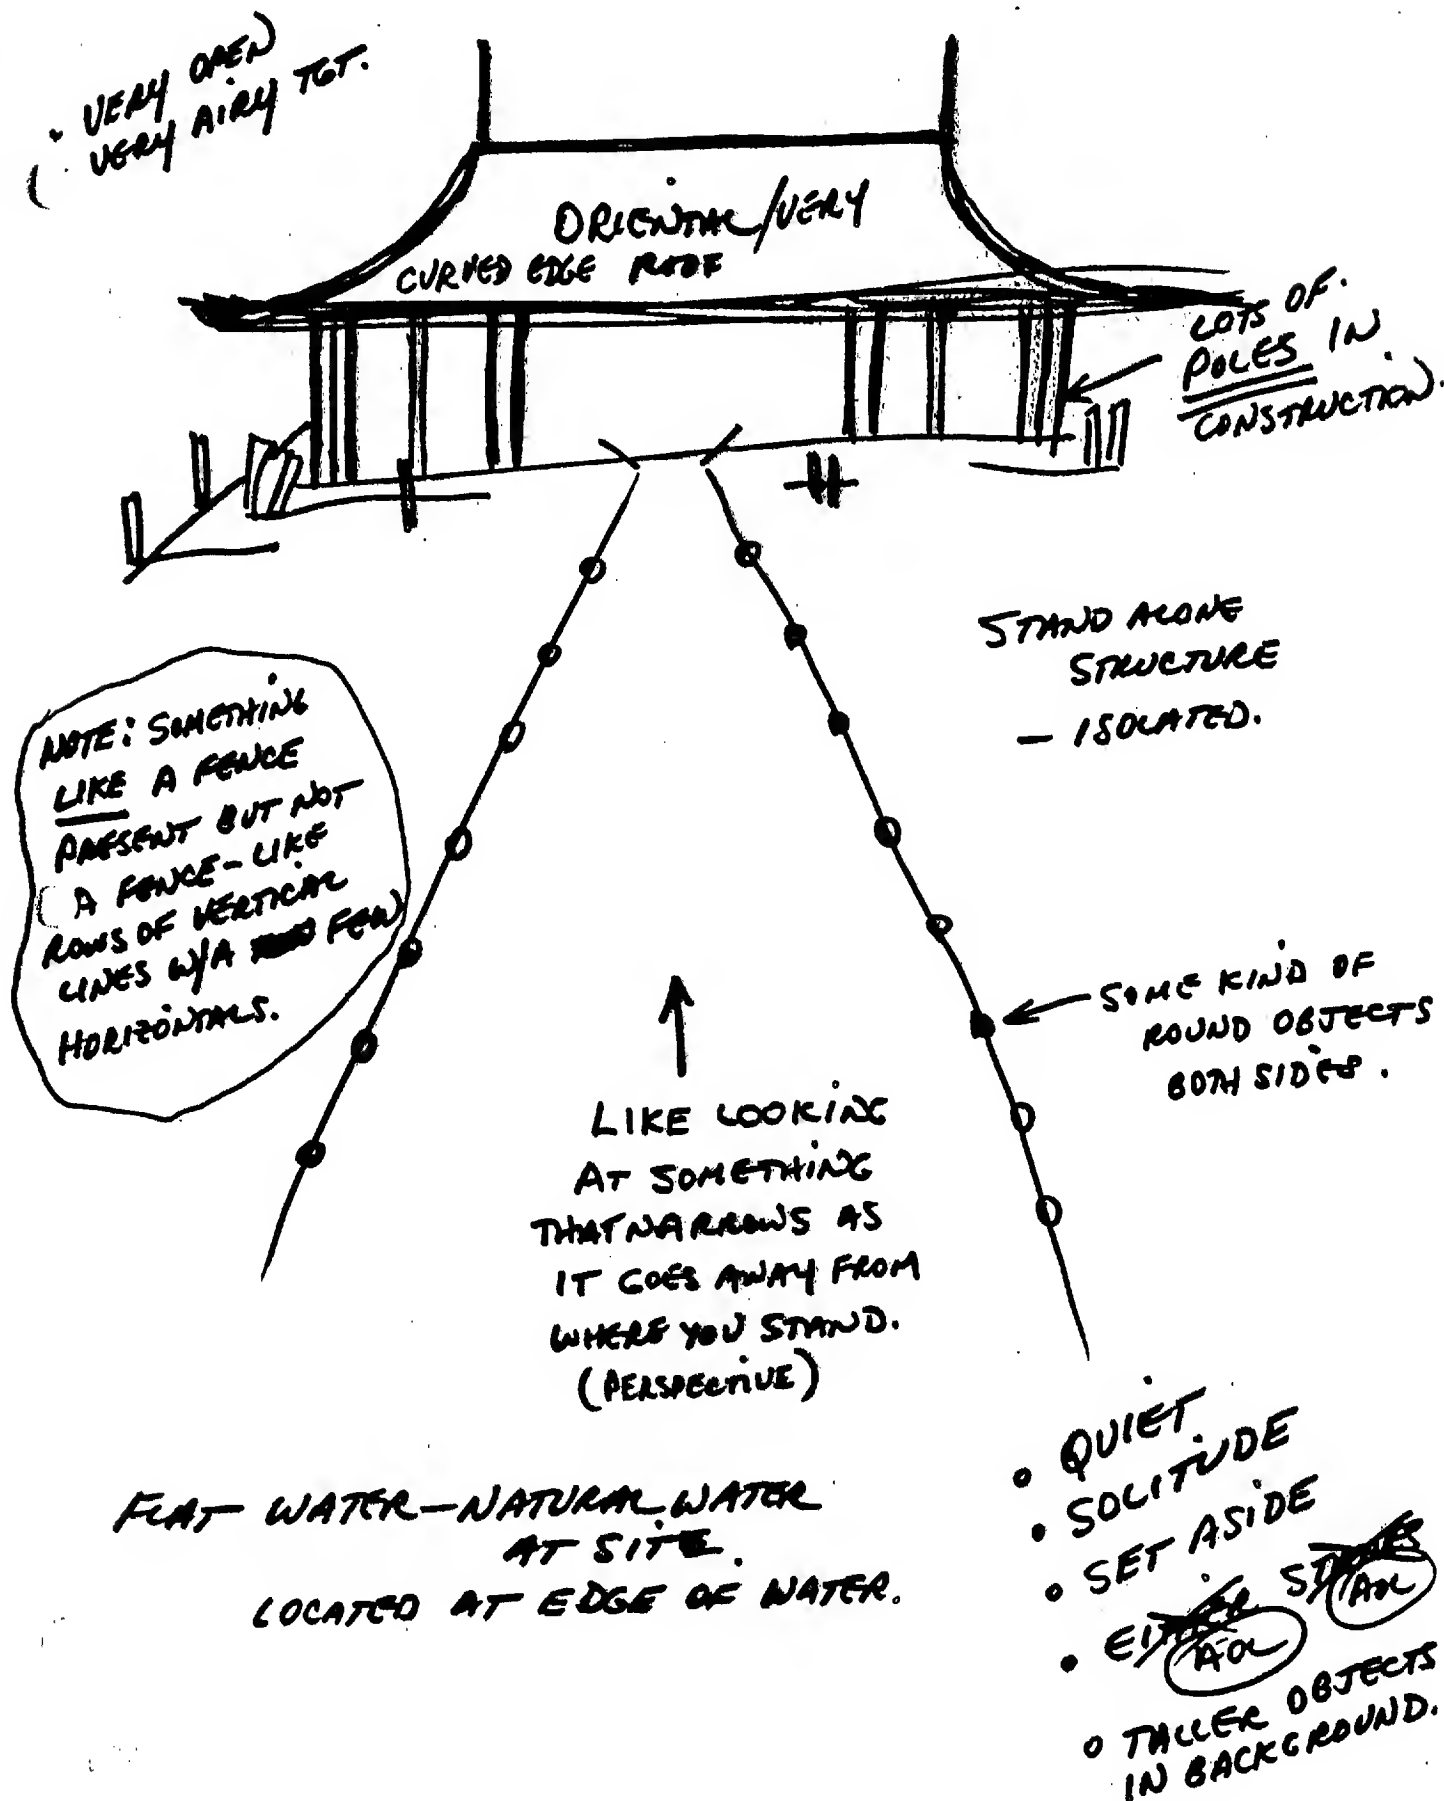 • VERY OPEN
• VERY AIRY TGT.
ORIENTAL/VERY
CURVED EDGE ROOF
LOTS OF
POLES IN
CONSTRUCTION.
STAND ALONE
STRUCTURE
— ISOLATED.
NOTE: SOMETHING
LIKE A FENCE
PRESENT BUT NOT
A FENCE-LIKE
ROWS OF VERTICAL
LINES W/A FEW
HORIZONTALS.
SOME KIND OF
ROUND OBJECTS
BOTH SIDES.
LIKE LOOKING
AT SOMETHING
THAT NARROWS AS
IT GOES AWAY FROM
WHERE YOU STAND.
(PERSPECTIVE)
FLAT WATER—NATURAL WATER
AT SITE.
LOCATED AT EDGE OF WATER.
• QUIET
• SOLITUDE
• SET ASIDE
• EITHER
AOL
AOL
• TALLER OBJECTS
IN BACKGROUND.